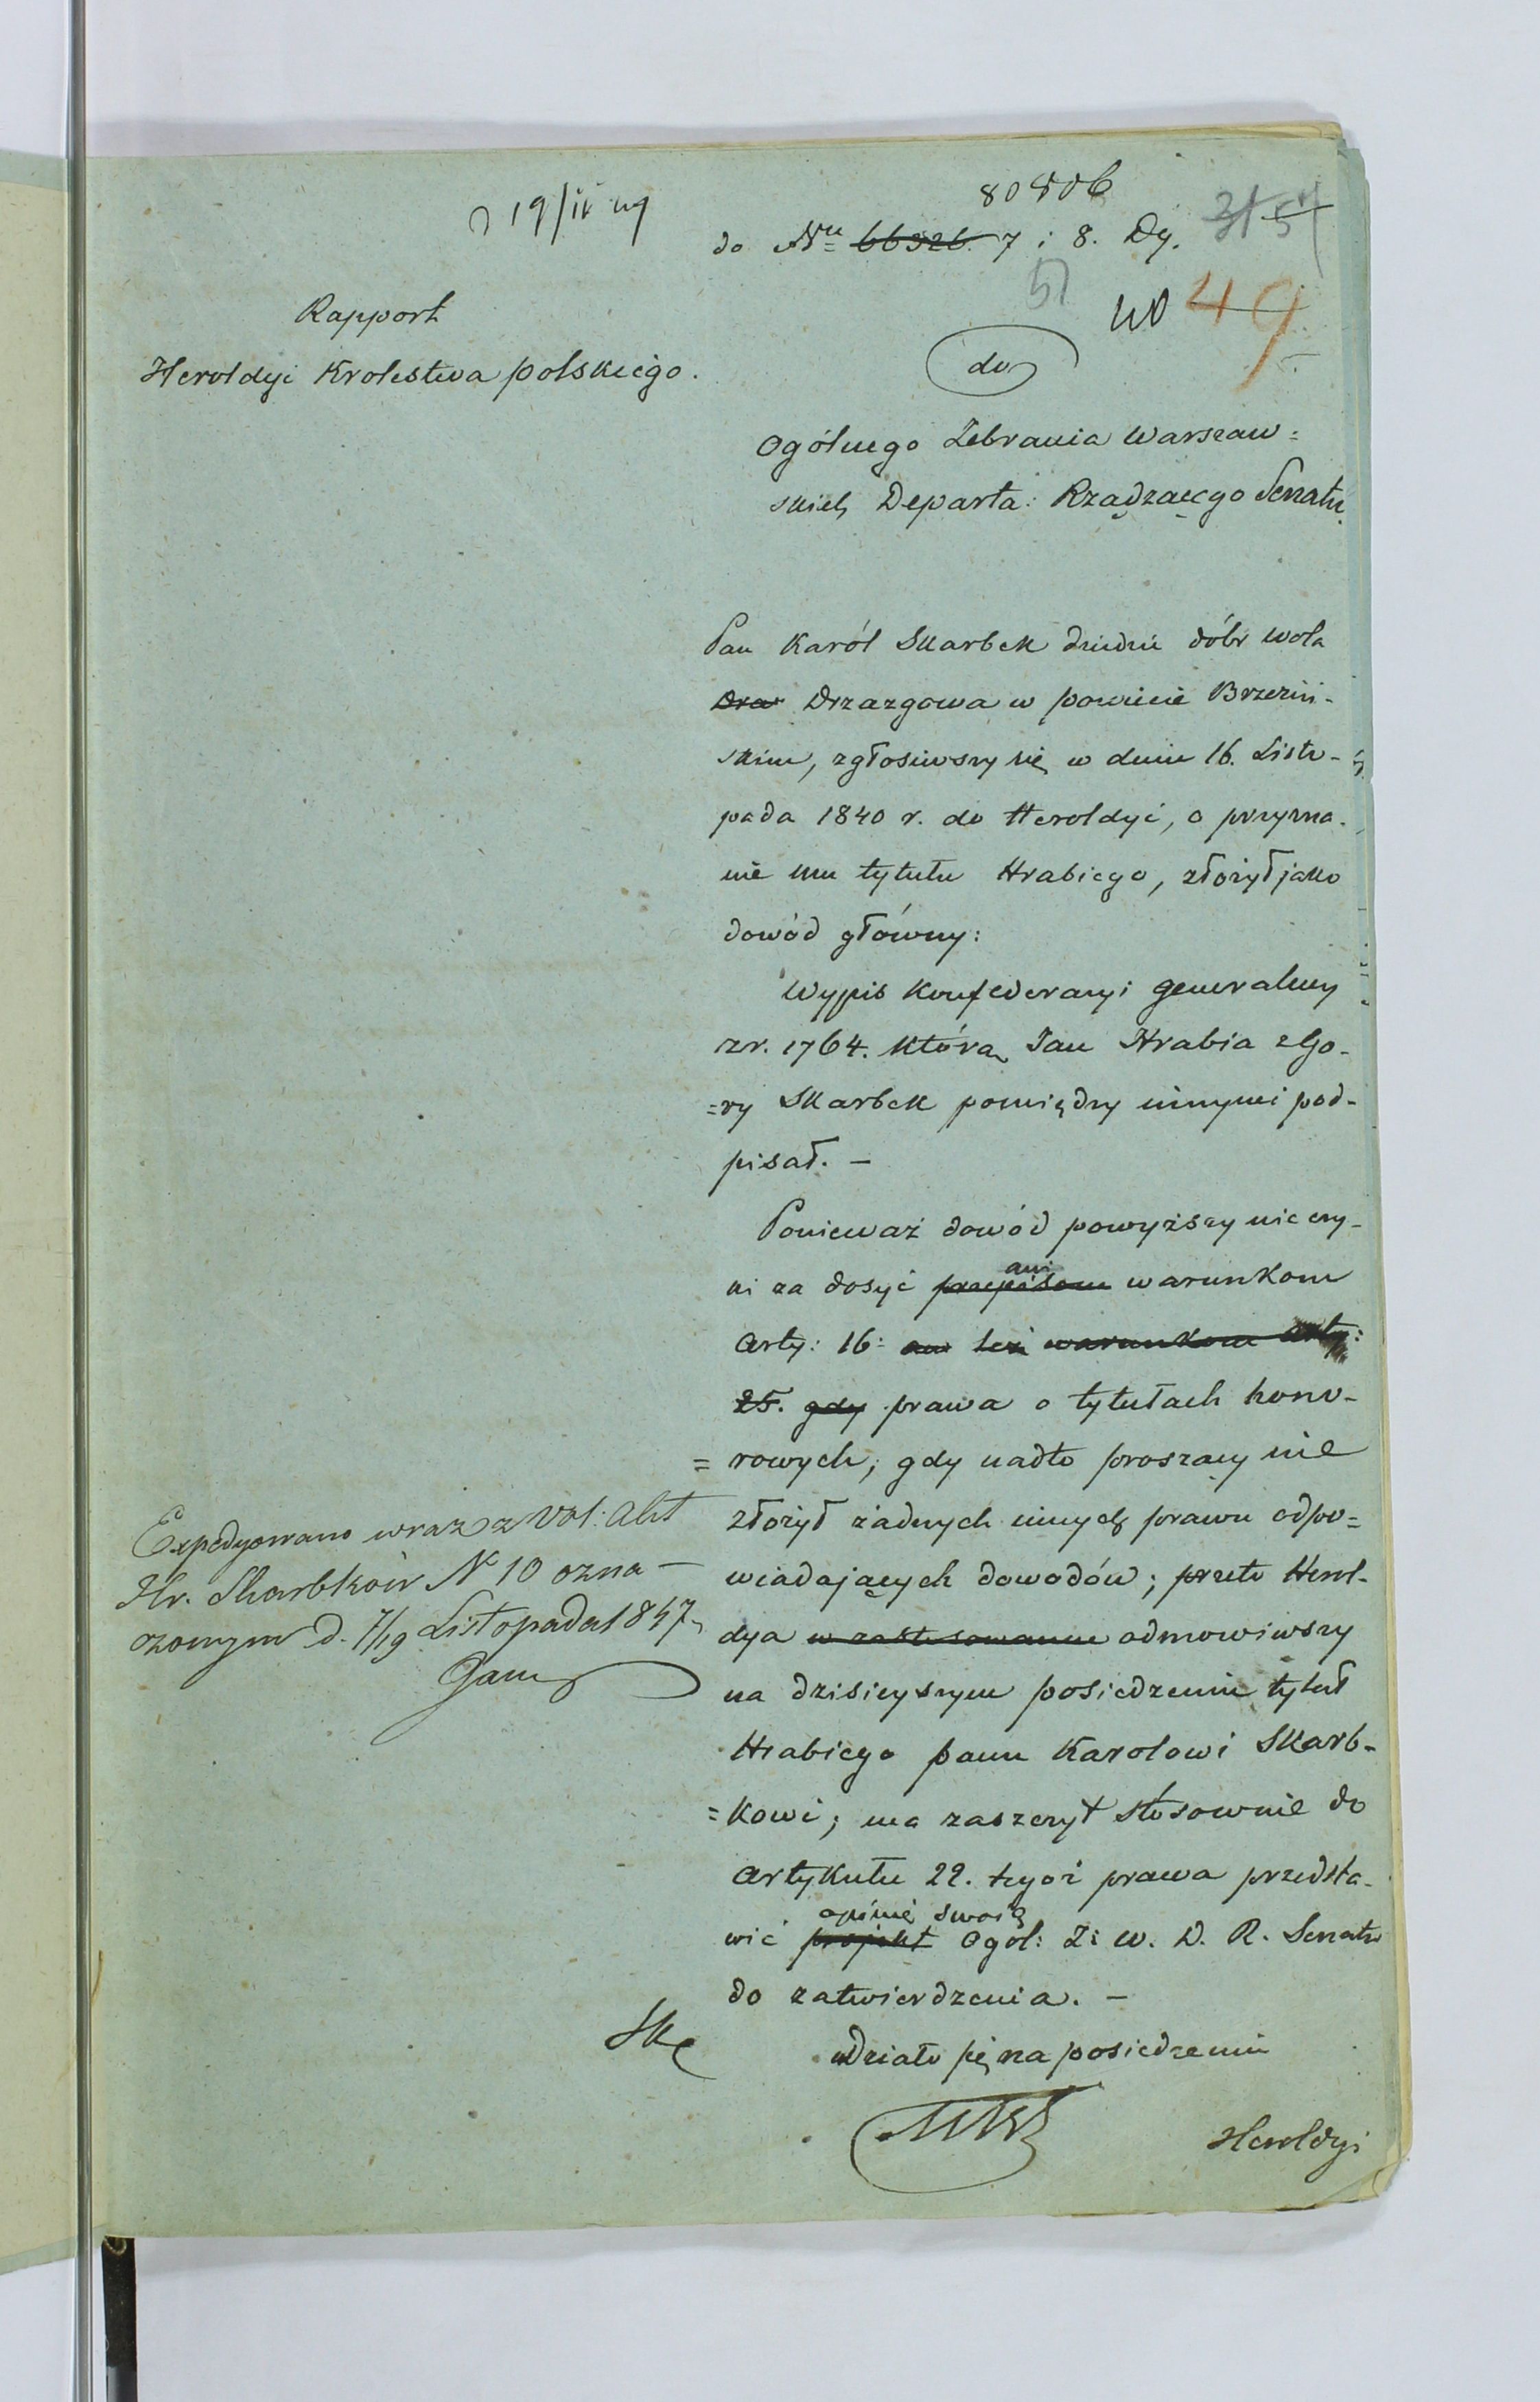 19/
80806
do Nru 66326 7 i 8. Dy.
51
49
Rapport
Heroldyi Krolestwa polskiego.
do
Ogólnego Zebrania Warszaw=
skich Departa: Rządzącego Senatu
Pan Karól Skarbek dziedzic dóbr Wola
Dra Drzazgowa w powiecie Brzeziń-
skim, zgłosiwszy się w dniu 16. Listo-
pada 1840 r. do Heroldyi, o przyzna-
nie mu tytułu Hrabiego, złożył jako
dowód główny:
Wypis Konfederacyi generalney
z r. 1764. którą Jan Hrabia z Gó-
=ry Skarbek pomiędzy innymi pod-
pisał. —
Ponieważ dowód powyższy nie czy-
ni za dosyć przepisom ani warunkom
Arty: 16: ani też warunkom Arty:
25. gdy prawa o tytułach hono-
=rowych; gdy nadto proszący nie
złożył żadnych innych prawu odpo=
wiadających dowodów; przeto Herol-
dya w zastosowaniu odmowiwszy
na dzisieyszym posiedzeniu tytuł
Hrabiego panu Karolowi Skarb-
=kowi; ma zaszczyt stósownie do
Artykułu 22. tegoż prawa przedsta-
opinię swoią
wić projekt Ogól: Z: W. D. R. Senatu
do zatwierdzenia. —
Działo się na posiedzeniu
Heroldyi
Expedyowano wraz z Vol: Akt
Hr. Skarbków N 10 ozna-
czonym d. 7/19 Listopada 1847